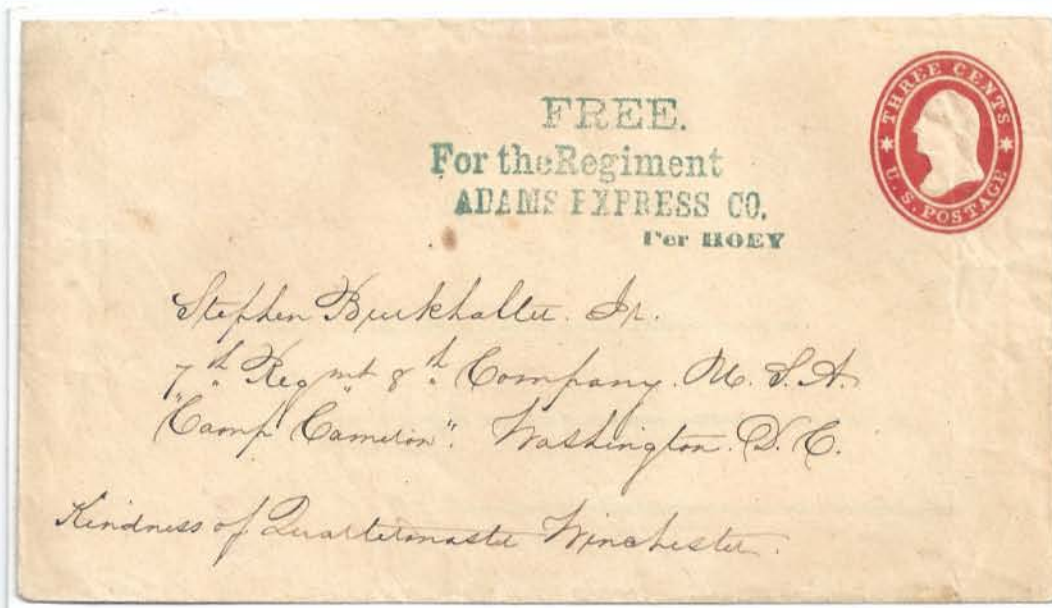 FREE.
For the Regiment
ADAMS EXPRESS CO.
Per HOEY
THREE CENTS
U.S. POSTAGE
Stephen Burkhalter. Jr.
7th Regmt 8th Company. N. S. A.
"Camp Cameron". Washington. D. C.
Kindness of Quartermaster Winchester.